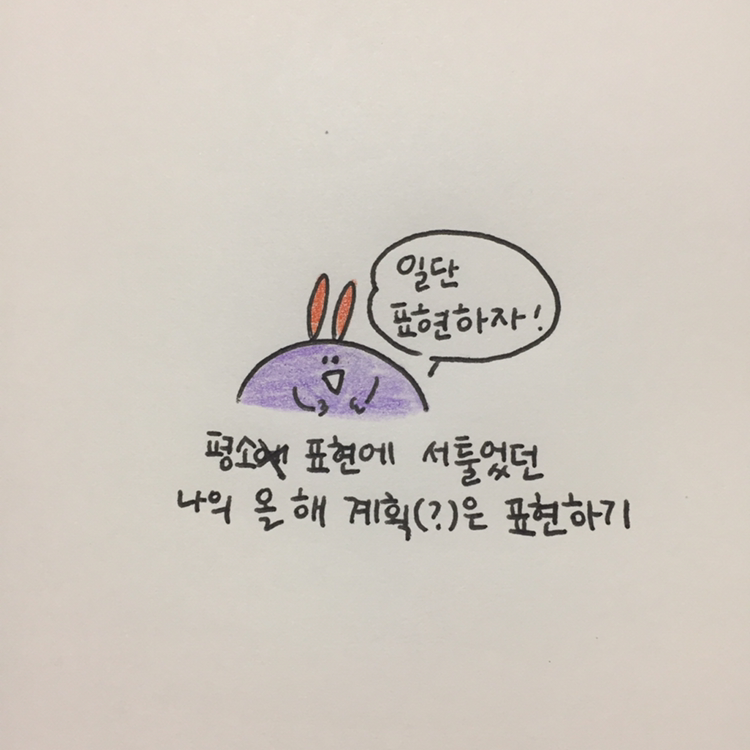 일단
표현하자!
평소 표현에 서툴었던
나의 올해 계획(?)은 표현하기